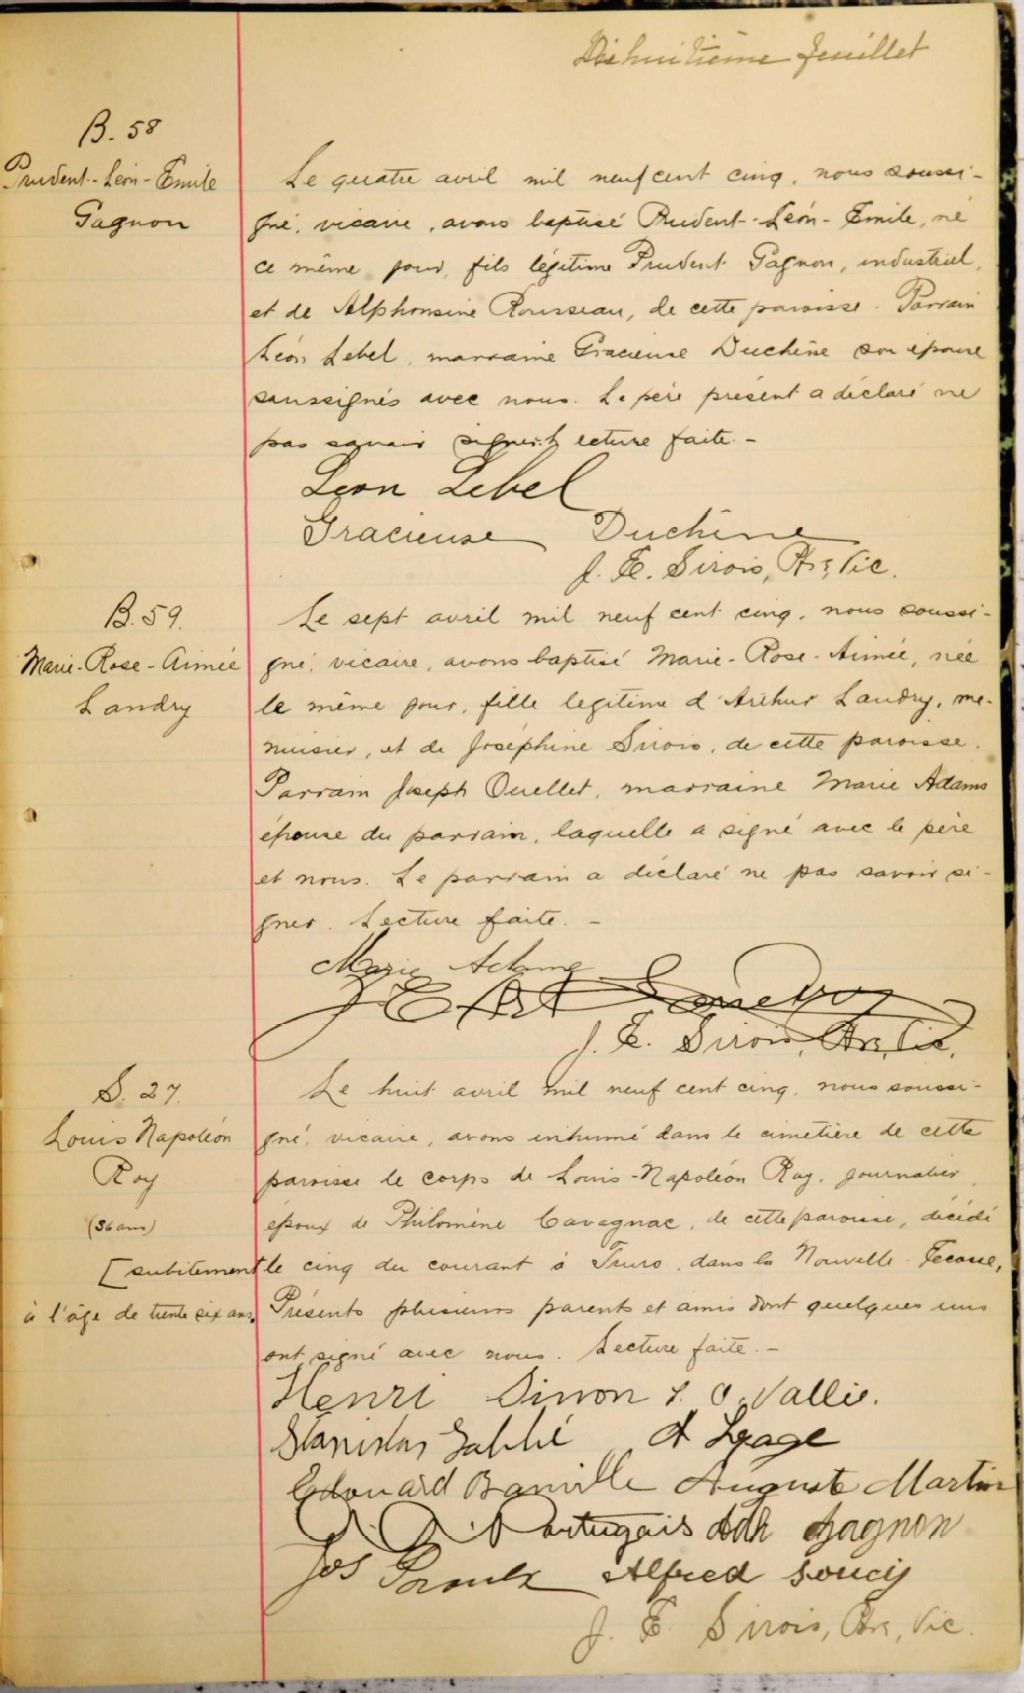 Dixhuitième feuillet
B. 58
Prudent-Léon-Emile
Gagnon
Le quatre avril mil neuf cent cinq, nous soussi-
gné, vicaire, avons baptisé Prudent-Léon-Emile, né
ce même jour, fils légitime Prudent Gagnon, industriel,
et de Alphonsine Rousseau, de cette paroisse. Parrain
Léon Lebel, marraine Gracieuse Duchêne son épouse
soussignés avec nous. Le père présent a déclaré ne
pas savoir signer. Lecture faite. -
Léon Lebel
Gracieuse Duchêne
J. E. Sirois, Ptre, Vic.
B. 59.
Marie-Rose-Aimée
Landry
Le sept avril mil neuf cent cinq, nous soussi-
gné, vicaire, avons baptisé Marie-Rose-Aimée, née
le même jour, fille légitime d'Arthur Landry, me-
nuisier, et de Joséphine Sirois, de cette paroisse.
Parrain Joseph Ouellet, marraine Marie Adams
épouse du parrain, laquelle a signé avec le père
et nous. Le parrain a déclaré ne pas savoir si-
gner. Lecture faite. -
Marie Adams
J. E. Sirois, Ptre, Vic.
S. 27.
Louis Napoléon
Roy
(36 ans)
[subitement
à l'âge de trente six ans.
Le huit avril mil neuf cent cinq, nous soussi-
gné, vicaire, avons inhumé dans le cimetière de cette
paroisse le corps de Louis-Napoléon Roy, journalier
époux de Philomène Cavagnac, de cette paroisse, décédé
le cinq du courant à Truro, dans la Nouvelle-Ecosse,
Présents plusieurs parents et amis dont quelques uns
ont signé avec nous. Lecture faite. -
Henri Dinon J. O. Vallie.
Stanislas
Edouard Banville Auguste Martin
Portugais Gagnon
Jos Alfred Soucy
J. E. Sirois, Ptre, Vic.